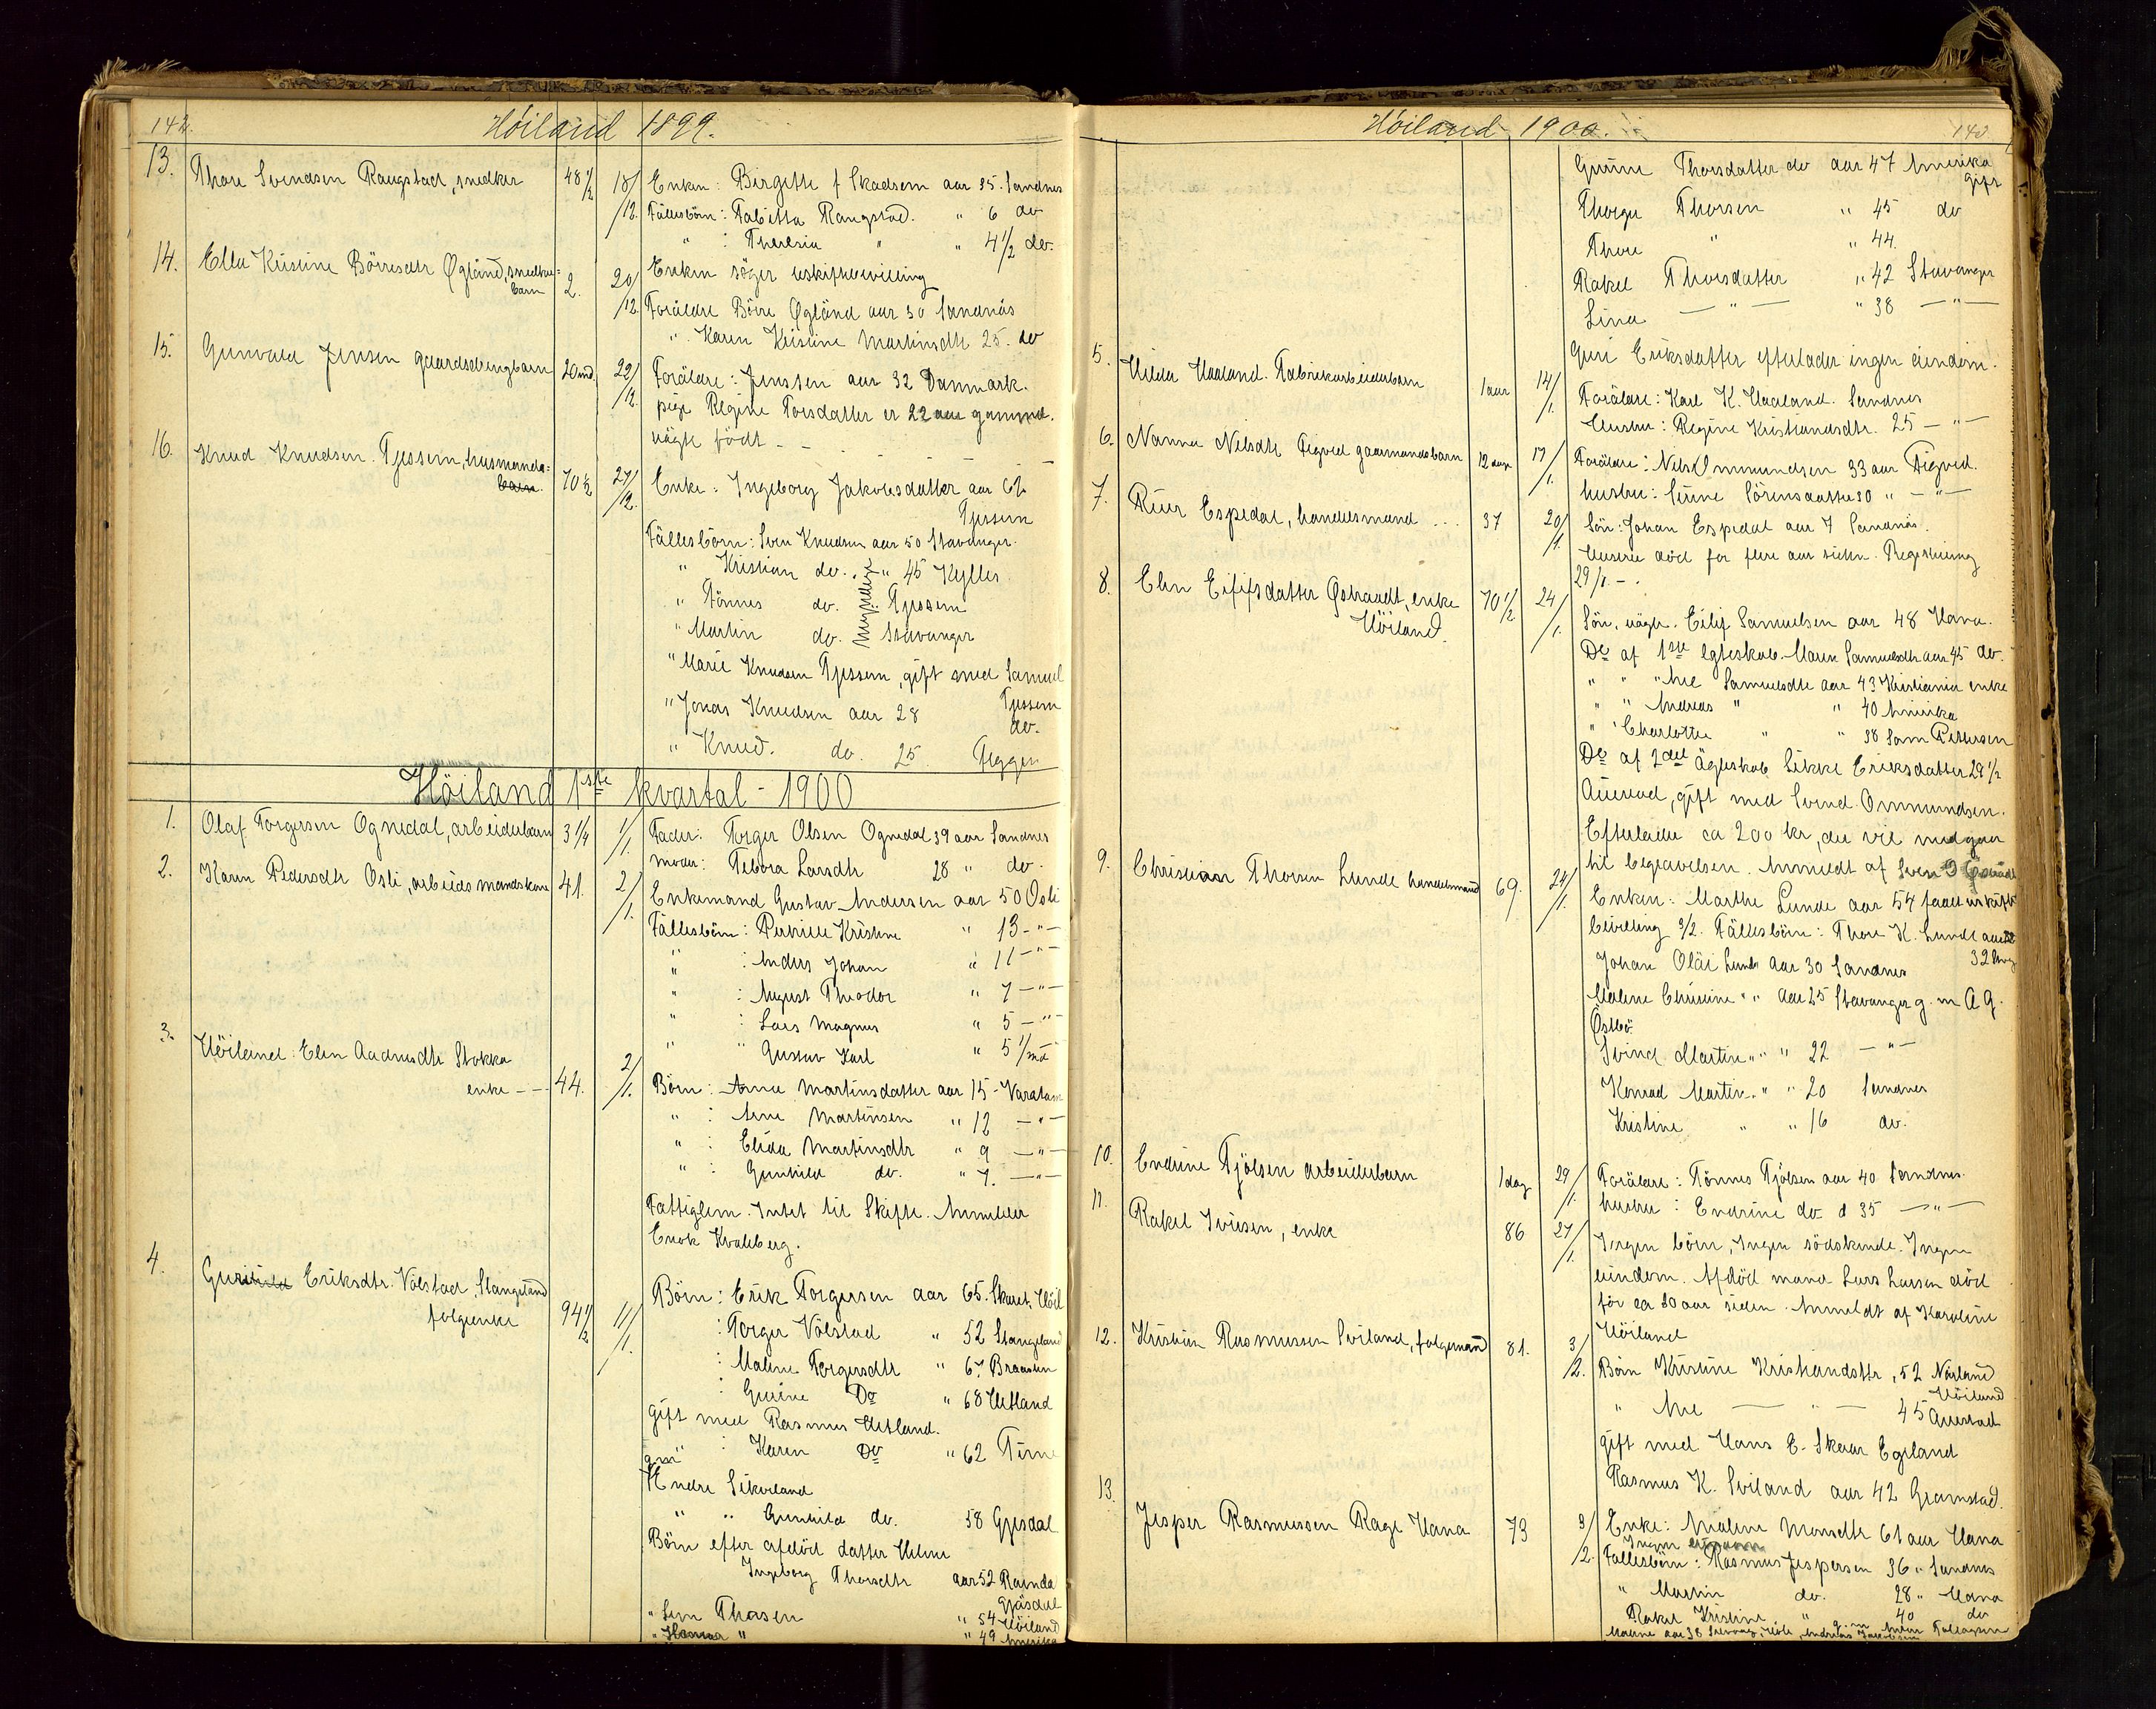 142.
Höiland 1899.
13. Thore Svendsen Raugstad, snedker 48 1/2 18/12. Enken: Birgitte f Skadsem aar 35. Sandnes
Fällesbörn: Tabitta Raugstad. " 6 do
" : Theresia " " 4 1/2 do.
Enken söger uskiftebevilling
14. Ella Kristine Börresdtr Øgländ, snedker=
barn 2. 20/12. Foräldre Börre Øgländ aar 30 Sandnäs
". Karen Kristine Martinsdtr 25. do
15. Gunvald Jensen gaardsdrengbarn 20 md. 22/12. Foräldre: Jenssen aar 32 Danmark.
pige Regine Torsdatter er 22 aar gammel.
uägte födt - -
16. Knud Knudsen Tjessem, husmands=
barn. 70 1/2 27/12. Enke: Ingeborg Jakobsdatter aar
Tjessem
Fällesbörn: Sven Knudsen aar 50 Stavanger.
" Kristian do. " 45 Kylles
" Tönnes do. Tjessem
" Martin do. Stavanger
myndige
" Marie Knudsen Tjessem, gift med Samuel
Tjessem
" Jonas Knudsen aar 28 do.
" Knud. do. 25. Figgen
Höiland 1ste kvartal - 1900
1. Olaf Torgersen Ognedal, arbeiderbarn 3 1/4 1/1. Fader: Torger Olsen Ognedal 39 aar Sandnes
moder: Tebora Larsdtr 28 " do.
2. Karen Pedersdtr Osli, arbeidsmandskone 41. 2/1. Enkemand Gustav Andersen aar 50 Osli
Fällesbörn: Pernille Kristine " 13 - " -
" : Anders Johan " 11 - " -
" : August Theodor " 7 - " -
" : Lars Magnus " 5 - " -
" " Gustav Karl " 5 1/ md
3. Höiland: Elen Aadnesdtr Stokka
enke - - 44. 2/1. Börn: Anna Martinsdatter aar 15 - Varatun
" : Arne Martinsen " 12 - " -
" : Elida Martinsdtr " 9 - " -
" : Gunhild do. " 7. - " -
Fattiglem. Intet til Skifte. Anmelder
Enok Kvaleberg.
4. Guri Eriksdtr. Volstad, Stangeland
folgeenke 94 1/2 11/1. Börn: Erik Torgersen aar 65. Skaret, Höil
: Torger Volstad " 52 Stangeland
: Malene Torgersdtr " 67 Braasten
: Gurine Do " 68 Uetland
gift med Rasmus Uetland.
: Karen Do " 62 Time
Endre Sikveland
" " Gunhild do. 58 Gjesdal
Börn efter afdöd datter Helene
Ingeborg Thorsdtr aar 52 Ravndal
Gjäsdal
" Sven Thorsen " 54 Höiland
" " " 49 Amerika
Höiland 1900.
143
Gurine Thorsdatter do aar 47 Amerika
gift
Thorger Thorsen " 45 do
Thore " " 44.
Rakel Thorsdatter " 42 Stavanger
Lina - " - " 38 - " -
Guri Eriksdatter efterlader ingen eiendom.
5. Hilda Haaland. Fabrikarbeiderbarn 1 aar 14/1. Foräldre: Karl K. Haaland. Sandnes
Hustru: Regine Kristiansdtr. 25 - " -
6. Nanna Nilsdtr Figved gaarmandsbarn 12 dage 17/1. Foräldre: Nils Ommundsen 33 aar Figved.
hustru: Sirine Sörensdatter 30 " - " -
7. Riur Espedal, handelsmand ... 37 20/1. Sön: Johan Espedal aar 7 Sandnäs.
Hustru död for flere aar siden. Registrering
29/1 - .
8. Elen Eifif­sdatter Østraadt, enke
Höiland. 70 1/2 24/1. Sön, uägte. Eilif Samuelsen aar 48 Hana.
Do af 1ste egteskab. Maren Samuelsdtr aar 45 do.
" " " Ane Samuelsdtr aar 43 Kristiania enke
" " Andreas " " 40 Amerika
" " Charlotte " " 38 Sam Pettersen
Do af 2det Ägteskab Sikke Eriksdatter 29 1/2
Auestad, gift med Svend Ommundsen.
Efterlader ca 200 kr, der vil medgaa
til begravelsen. Anmeldt af Sven O Østraadt
9. Christian Thorsen Lunde handelsmand 69. 24/1. Enken: Marthe Lunde aar 54 faaet uskifte
bevilling 9/2. Fällesbörn: Thore K. Lunde aar
32
Johan Olai Lunde aar 30 Sandnes
Malene Christine " " aar 25 Stavanger g. m A G.
Östbö.
Svend Martin " " " 22 - " -
Konrad Martin " " 20 Sandnes
Kristine " " 16 do.
10. Endrine Tjölsen arbeiderbarn 1 dag 29/1. Foräldre: Tönnes Tjölsen aar 40 Sandnes.
hustru: Endrine do d 35 - " -
11. Rakel Iversen, enke 86 27/1. Ingen börn, Ingen södskende. Ingen
eiendom. Afdöd mand Lars Larsen död
for ca 30 aar siden. Anmeldt af Karoline
Höiland
12. Kristian Rasmussen Sviland, folgemand 81. 3/2. Börn Kristine Kristiansdtr, 52 Norland
Höiland
" Ane - " - 45 Auestad
gift med Hans E. Skaar Egeland
Rasmus K. Sviland aar 42 Gramstad.
13. Jesper Rasmussen Rage Hana 73 9/2. Enke: Malene Monsdtr 61 aar Hana
Ingen eiendom
Fällesbörn: Rasmus Jespersen 36 " Sandnes
" Martin do. 28 " Hana
Rakel Kristine " 40 do
Malene aar 38